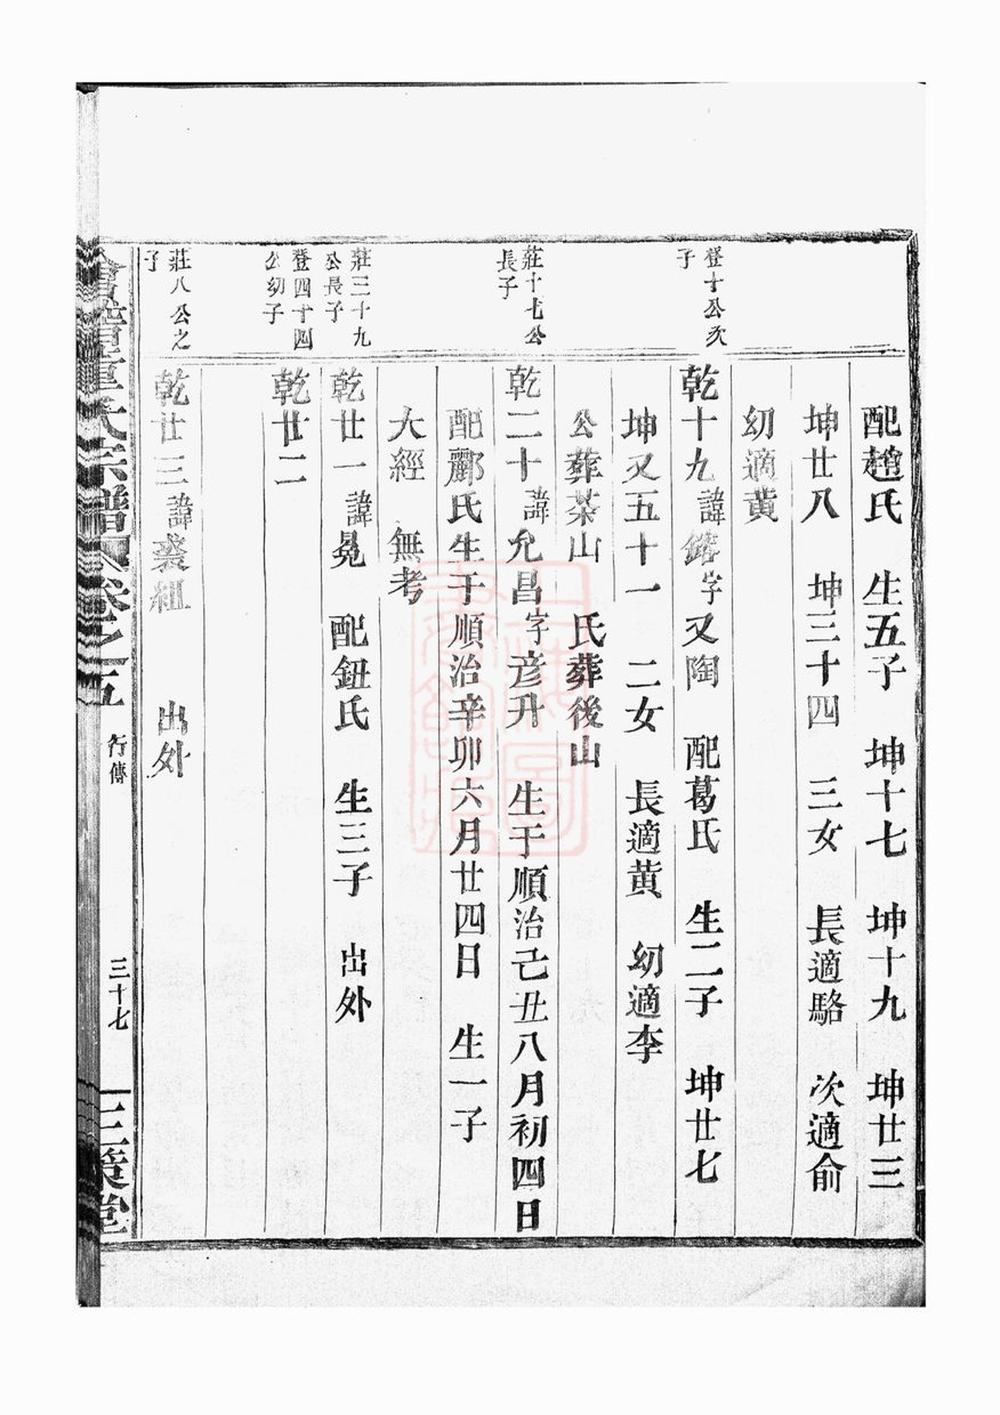 配趙氏　生五子　坤十七　坤十九　坤廿三
坤廿八　坤三十四　三女　長適駱　次適俞
幼適黃
登十公次
子
乾十九諱　字又陶　配葛氏　生二子　坤廿七
坤又五十一　二女　長適黃　幼適李
公葬茶山　氏葬後山
莊十七公
長子
乾二十諱允昌字彦升　生于順治己丑八月初四日
配酈氏生于順治辛卯六月廿四日　生一子
大經　無考
莊三十九
公長子
乾廿一諱晃　配鈕氏　生三子　出外
登四十四
公幼子
乾廿二
莊八公之
子
乾廿三諱裘組　出外
會稽章氏宗譜　卷之五　行傳　三十七　三策堂